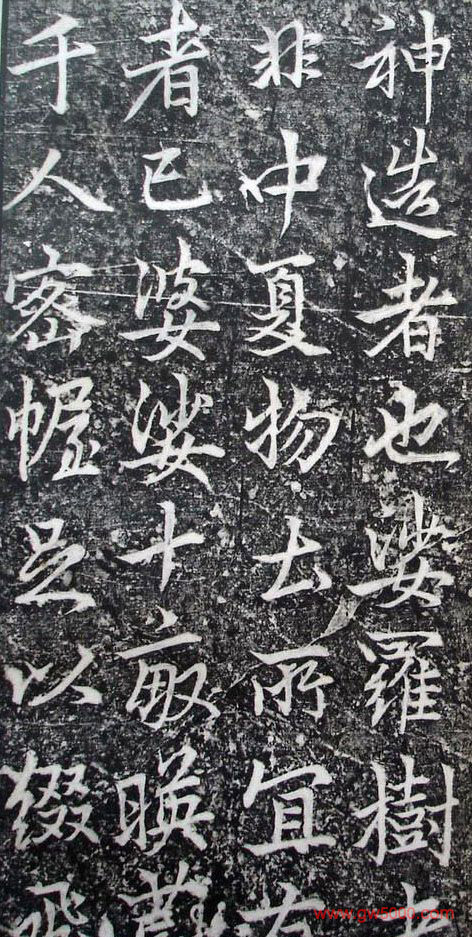 神造者也娑羅樹者
非中夏物土所宜有
者已婆娑十畝暎蔚
千人密幄足以綴飛
www.gw5000.com